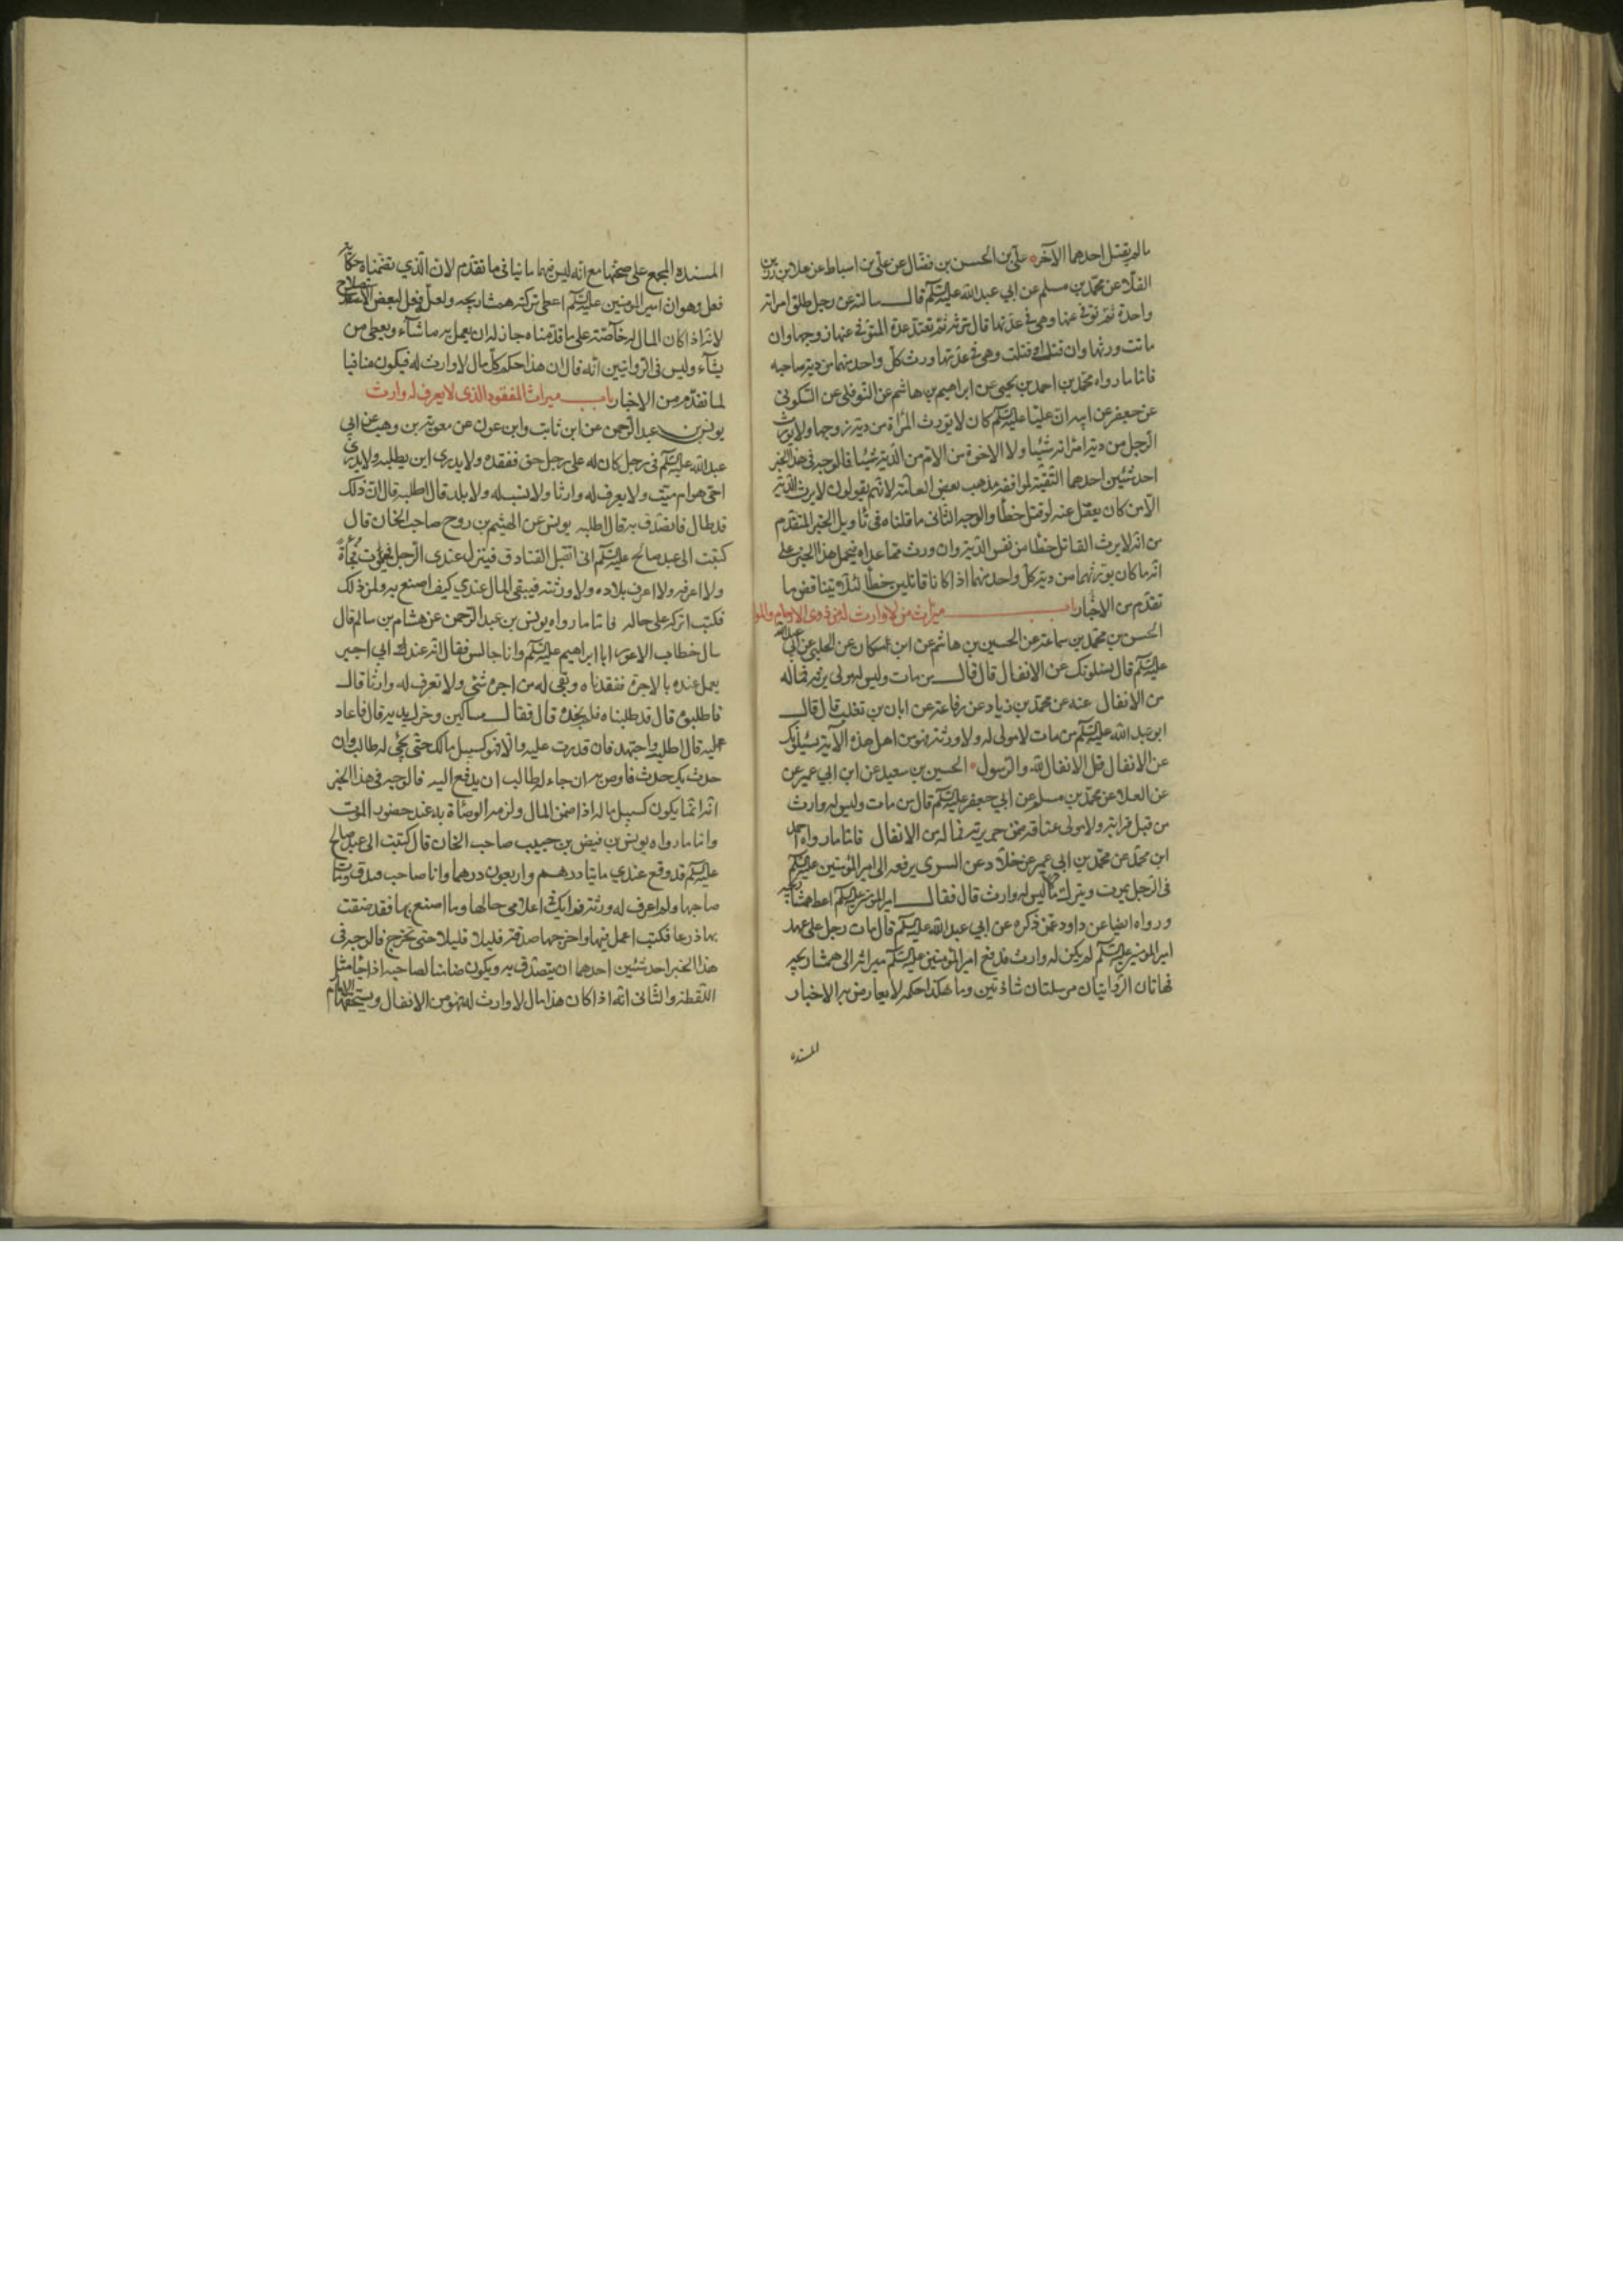 مالم يقتل احدهما الآخر علي بن الحسن بن فضال عن علي بن اسباط عن علا بن رزين
القلا عن محمد بن مسلم عن ابي عبدالله عليه السلم قال سالته عن رجل طلق امراته
واحدة ثم توفى عنها وهي في عدتها قال ترثه ثم تعتد عدة المتوفى عنها زوجها وان
ماتت ورثها وان قتل او قتلت وهي في عدتها ورث كل واحد منهما من دية صاحبه
فاما ما رواه محمد بن احمد بن يحيى عن ابراهيم بن هاشم عن النوفلي عن السكوني
عن جعفر عن ابيه ان عليا عليه السلم كان لا يورث المرأة من دية زوجها ولا يورث
الرجل من دية امراته شيئا ولا الاخوة من الام من الدية شيئا فالوجه في هذا الخبر
احد شيئين احدهما التقية لموافقه مذهب بعض العامة لانهم يقولون لا يرث الدية
الا من كان يعقل عنه لو قتل خطأ والوجه الثاني ما قلناه في تأويل الخبر المتقدم
من انه لا يرث القاتل خطأ من نفس الدية وان ورث مما عداه فيحمل هذا الخبر على
انه ما كان يورثهما من دية كل واحد منهما اذا كانا قاتلين خطأ لئلا يتناقض ما
تقدم من الاخبار باب ميراث من لا وارث له من ذوي الارحام والموا
الحسن بن محمد بن سماعة عن الحسين بن هاشم عن ابن مسكان عن الحلبي عن ابي عبدالله
عليه السلم قال يسئلونك عن الانفال قال قال من مات وليس له مولى يرثه فماله
من الانفال عنه عن محمد بن زياد عن رفاعة عن ابان بن تغلب قال قال
ابو عبد الله عليه السلم من مات لا مولى له ولا ورثة فهو من اهل هذه الآية يسئلونك
عن الانفال قل الانفال لله والرسول الحسين بن سعيد عن ابن ابي عمير عن
عن العلا عن محمد بن مسلم عن ابي جعفر عليه السلم قال من مات وليس له وارث
من قبل قرابته ولا مولى عتاقه ضمن جريرته فماله من الانفال فاما ما رواه احمد
ابن محمد عن محمد بن ابي عمير عن خلاد عن السري يرفعه الى امير المؤمنين عليه السلم
في الرجل يموت ويترك مالا ليس له وارث قال فقال امير المؤمنين عليه السلم اعط همشاريجه
ورواه ايضا عن داود عمن ذكره عن ابي عبدالله عليه السلم قال مات رجل على عهد
امير المؤمنين عليه السلم لم يكن له وارث فدفع امير المؤمنين عليه السلم ميراثه الى همشاريجه
فهاتان الروايتان مرسلتان شاذتين وما هكذا حكمه لا يعارض به الاخبار
المسنده
المسنده المجمع على صحتها مع انه ليس فيهما ما ينافي ما تقدم لان الذي تضمناه حكاية
فعل وهو ان امير المومنين عليه السلم اعطى تركته همشاريجه ولعل فعل لبعض الاستصلاح
لانه اذا كان المال له خاصة على ما قدمناه جاز له ان يعمل به ما شآء ويعطي من
يشآء وليس في الروايتين انه قال ان هذا حكم كل مال لا وارث له فيكون منافيا
لما تقدم من الاخبار باب ميراث المفقود الذي لا يعرف له وارث
يونس بن عبدالرحمن عن ابن ثابت وابن عون عن معوية بن وهب عن ابي
عبدالله عليه السلم في رجل كان له على رجل حق ففقده ولا يدري اين يطلبه ولا يدري
احي هو ام ميت ولا يعرف له وارثا ولا نسب له ولا بلد قال اطلبه قال ان ذلك
قد طال فاتصدق به قال اطلبه يونس عن الهيثم بن روح صاحب الخان قال
كتبت الى عبد صالح عليه السلم انى اتقبل الفنادق فينزل عندي الرجل فيموت فجأة
ولا اعرفه ولا اعرف بلاده ولا ورثته فيبقى المال عندي كيف اصنع به ولمن ذلك
فكتب اتركه على حاله فاما ما رواه يونس بن عبدالرحمن عن هشام بن سالم قال
سال خطاب الاعور ابا ابراهيم عليه السلم وانا جالس فقال انه عند ابي اجير
يعمل عنده بالاجرة ففقدناه وبقي له من اجره شئ ولا نعرف له وارثا قال
فاطلبوه قال قد طلبناه فلم نجده قال فقال مساكين وحرك يديه قال فاعاد
عليه قال اطلب واجتهد فان قدرت عليه والا فهو كسبيل مالك حتى يجئ له طالب وان
حدث بك حدث فاوص به ان جاء له طالب ان يدفع اليه فالوجه في هذا الخبر
انه انما يكون كسبيل ماله اذا ضمن المال ولزمه الوصاة به عند حضور الموت
واما ما رواه يونس بن فيض بن حبيب صاحب الخان قال كتبت الى عبد صالح
عليه السلم قد وقع عندي مايتا درهم واربعون درهما وانا صاحب فندق ومات
صاحبها ولم اعرف له ورثة فرايك في اعلامي حالها وما اصنع بها فقد ضقت
بها ذرعا فكتب اعمل فيها واخرجها صدقة قليلا قليلا حتى تخرج فالوجه في
هذا الخبر احد شئين احدهما ان يتصدق به ويكون ضامنا لصاحبه اذا جاء مثل
اللقطة والثاني انه اذا كان هذا مال لا وارث له فهو من الانفال ويستحقها الامام